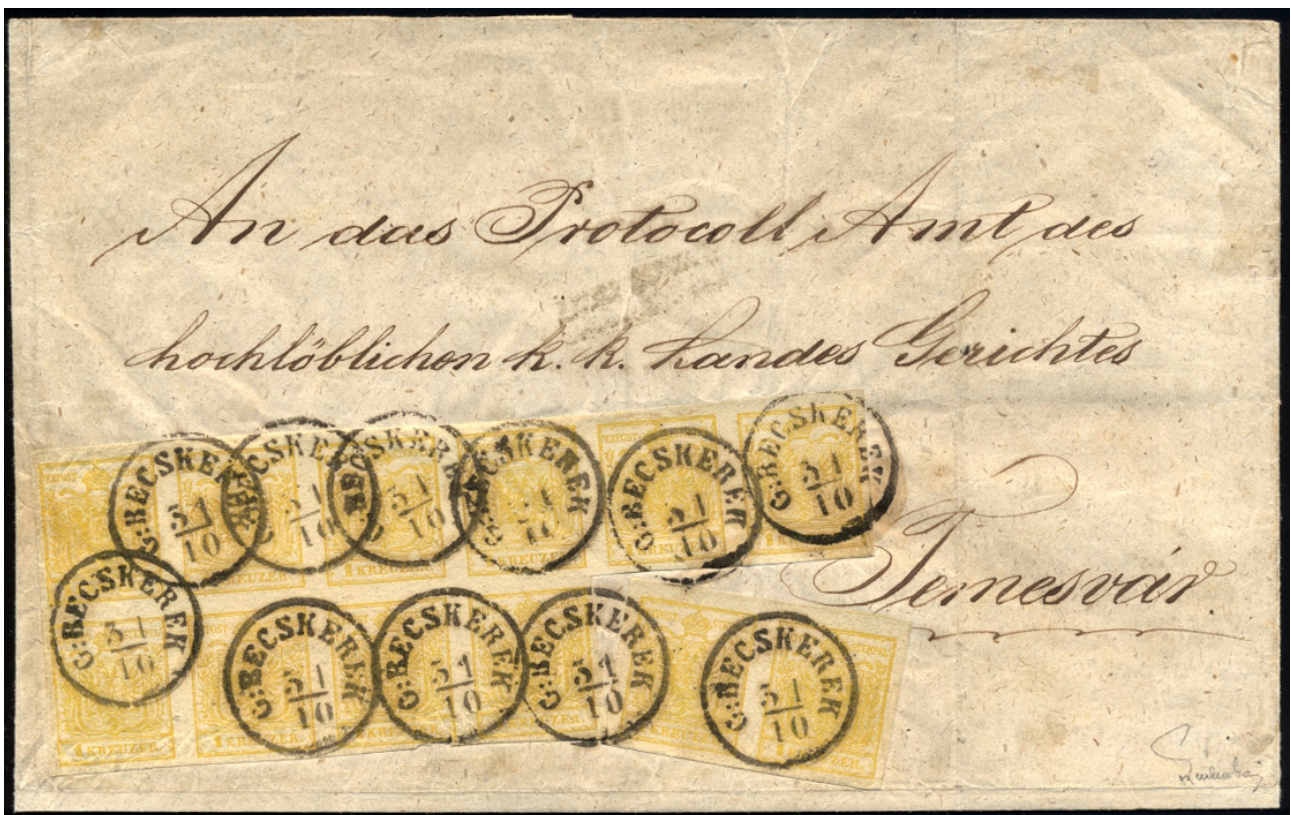 An das Protocoll Amt des
hochlöblichen k. k. Landes Gerichtes
G:BECSKEREK 31/10
G:BECSKEREK 31/10
G:BECSKEREK 31/10
G:BECSKEREK 31/10
G:BECSKEREK 31/10
G:BECSKEREK 31/10
1 KREUZER
KREUZER
KREUZER
Temesvár.
G:BECSKEREK 31/10
G:BECSKEREK 31/10
G:BECSKEREK 31/10
G:BECSKEREK 31/10
G:BECSKEREK 31/10
1 KREUZER.
1 KREUZER